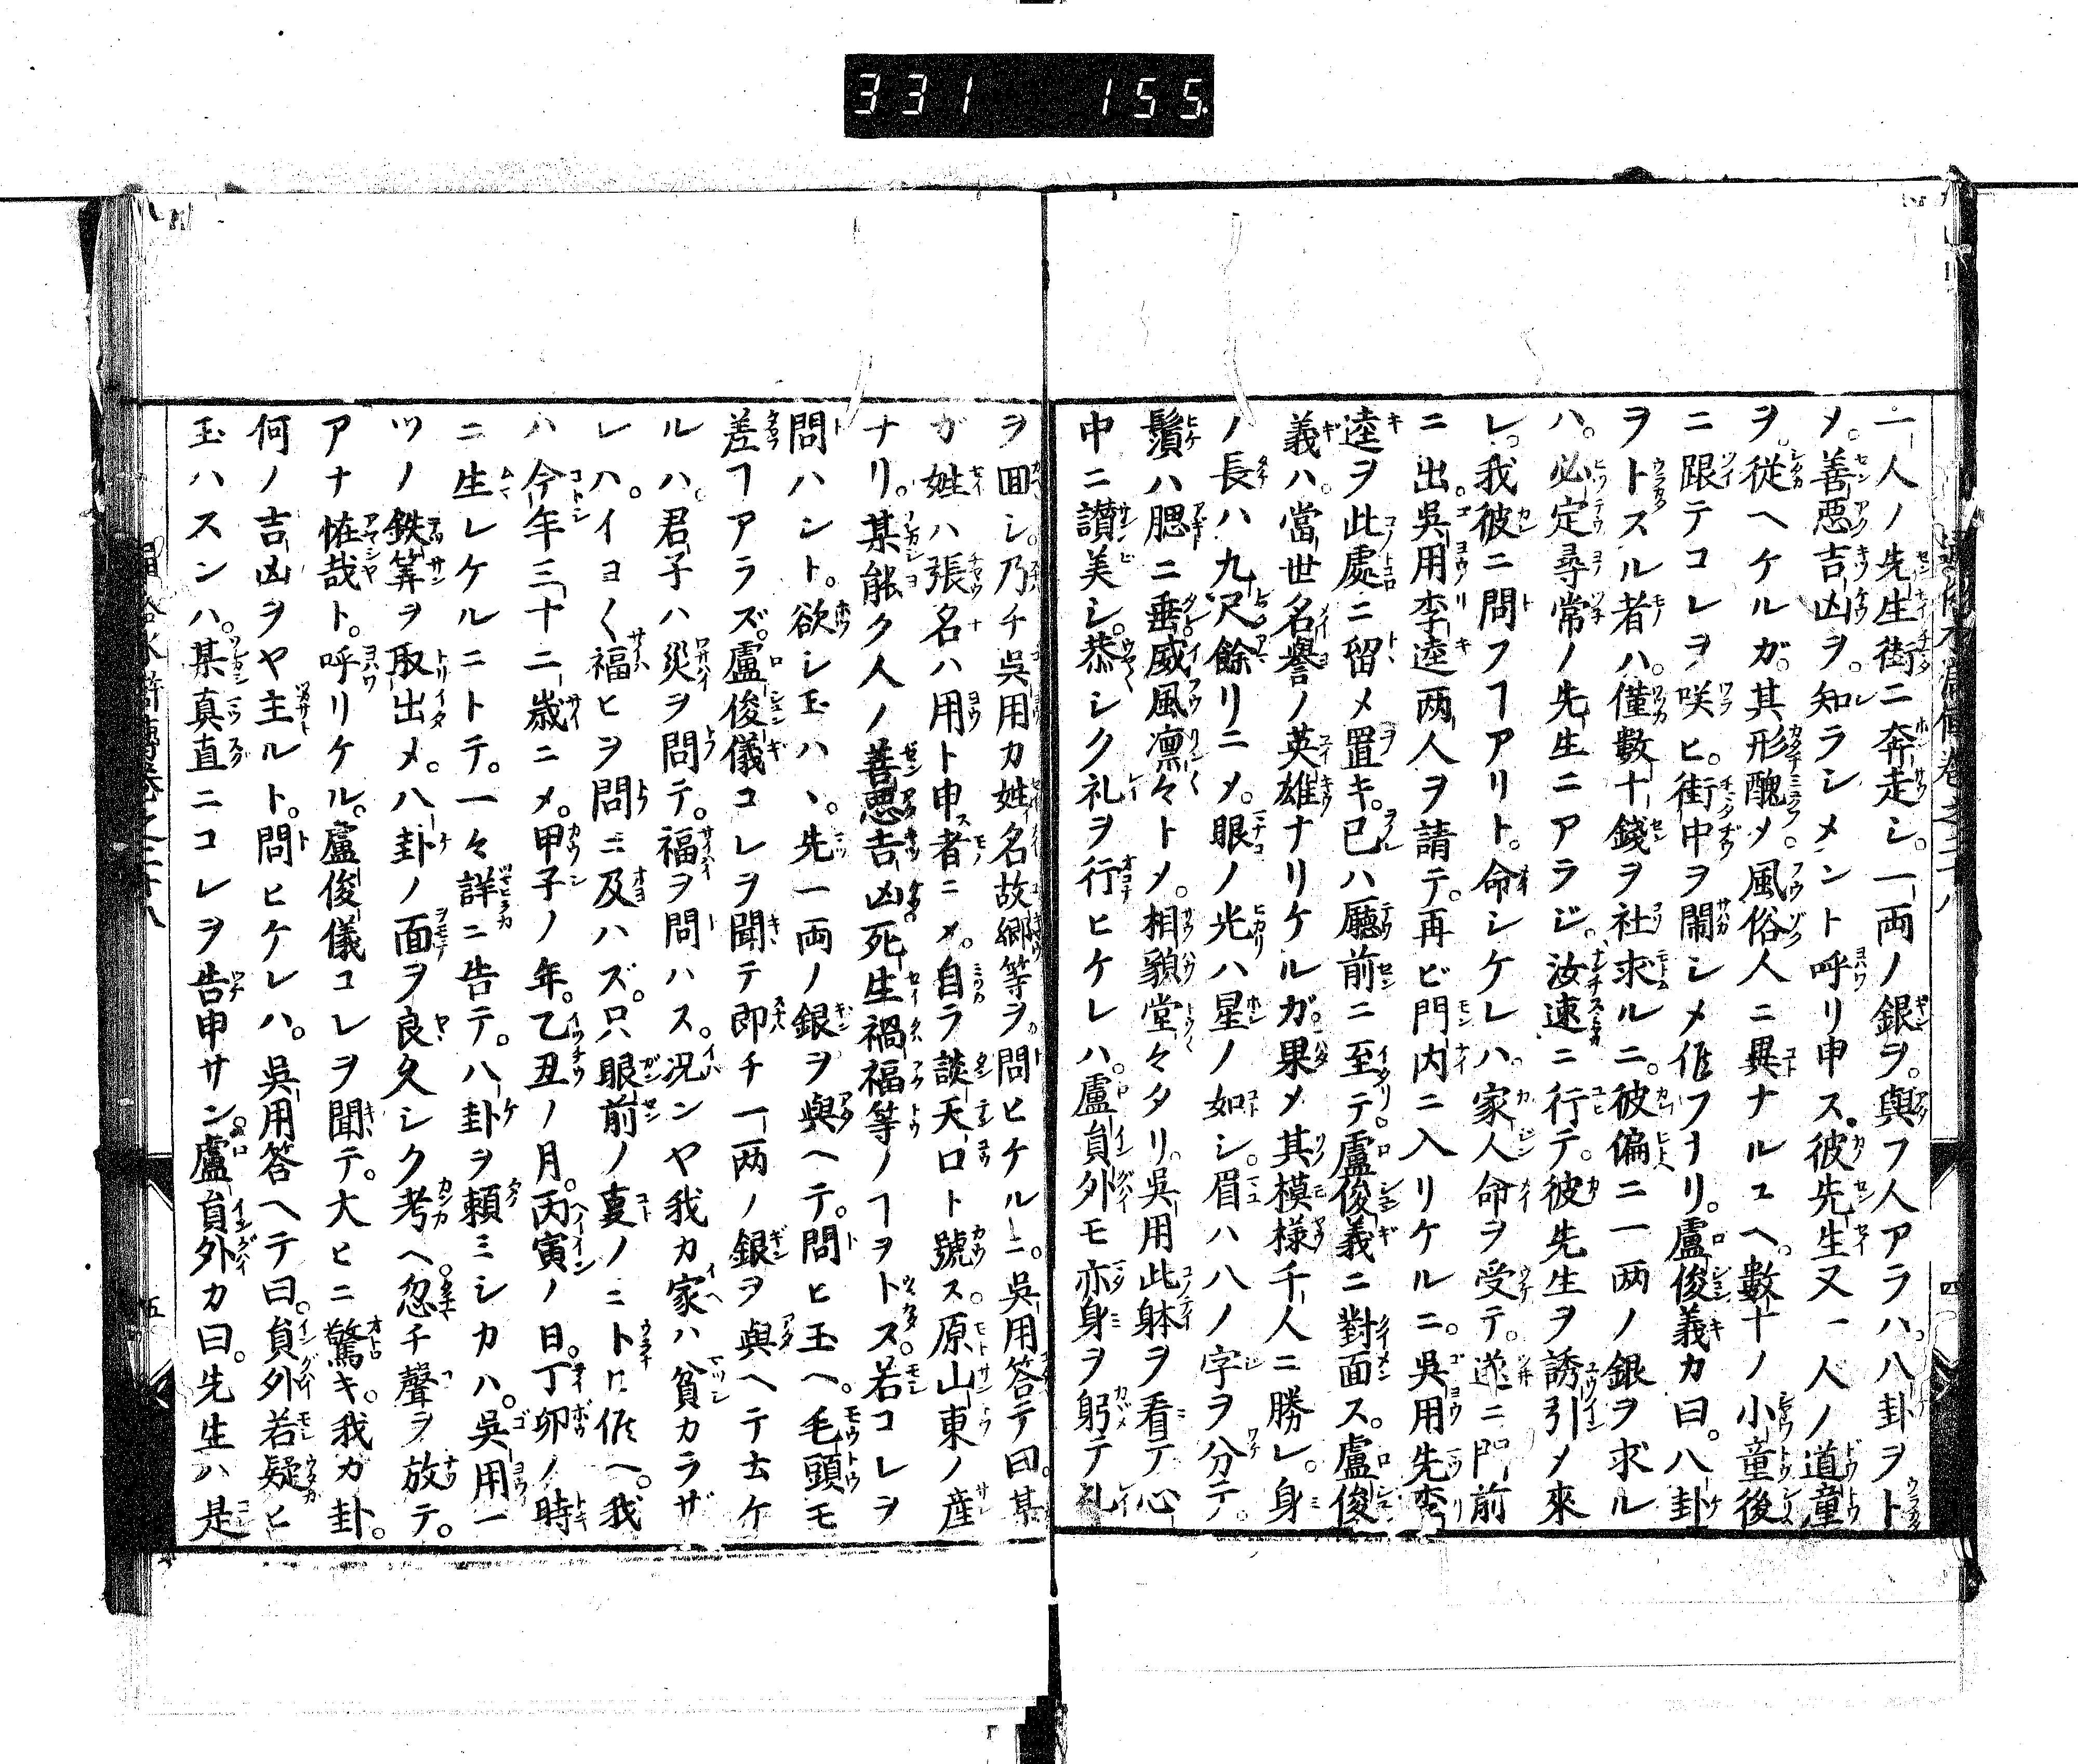 331 155.
一人ノ先生街ニ奔走シ。一両ノ銀ヲ。與フ人アラハ。八卦ヲト
メ。善悪吉凶ヲ。知ラシメント呼リ申ス。彼先生又一人ノ道童
ヲ。從ヘケルガ。其形醜メ。風俗人ニ異ナルユヘ。數十ノ小童後
ニ跟テコレヲ咲ヒ。街中ヲ鬧シメ候フナリ。盧俊義カ曰。八卦
ヲトスル者ハ。僅數十錢ヲ社求ルニ。彼偏ニ一两ノ銀ヲ求ル
ハ。必定尋常ノ先生ニアラジ。汝速ニ行テ。彼先生ヲ誘引メ來
レ。我彼ニ問フヿアリト。命シケレハ。家人命ヲ受テ。遂ニ門前
ニ出。吳用李逵两人ヲ請テ。再ビ門内ニ入リケルニ。吳用先李
逵ヲ此處ニ留メ置キ。已ハ廳前ニ至テ。盧俊義ニ對面ス。盧俊
義ハ。當世名譽ノ英雄ナリケルガ。果メ其模様千人ニ勝レ。身
ノ長ハ九尺餘リニメ。眼ノ光ハ星ノ如シ。眉ハ八ノ字ヲ分テ。
鬚ハ腮ニ垂。威風凛々トメ。相貌堂々タリ。吳用此躰ヲ看テ心
中ニ讃美シ。恭シク礼ヲ行ヒケレハ。盧員外モ亦身ヲ躬テ礼
ヲ囬シ。乃チ吳用カ姓名故郷等ヲ。問ヒケルニ。吳用答テ曰。某
ガ姓ハ張名ハ用ト申者ニメ。自ラ談天口ト號ス。原山東ノ産
ナリ。某能ク人ノ善悪吉凶死生禍福等ノヿヲトス。若コレヲ
問ハント。欲シ玉ハヽ。先一両ノ銀ヲ與ヘテ。問ヒ玉ヘ。毛頭モ
差フヿアラズ。盧俊儀コレヲ聞テ即チ一两ノ銀ヲ與ヘテ去ケ
ルハ。君子ハ災ヲ問テ。福ヲ問ハス。况ンヤ我カ家ハ貧カラザ
レハ。イヨく福ヒヲ問ニ及ハズ。只眼前ノ叓ノミトロ候ヘ。我
ハ今年三十二歳ニメ。甲子ノ年。乙丑ノ月。丙寅ノ日。丁卯ノ時
ニ生レケルニトテ。一々詳ニ告テ。八卦ヲ頼ミシカハ。吳用一
ツノ鉄筭ヲ取出メ。八卦ノ面ヲ良久シク考ヘ。忽チ聲ヲ放テ。
アナ恠哉ト。呼リケル。盧俊儀コレヲ聞テ。大ヒニ驚キ。我カ卦。
何ノ吉凶ヲヤ主ルト。問ヒケレハ。吳用答ヘテ曰。員外若疑ヒ
玉ハスンハ。某真直ニコレヲ告申サン。盧員外カ曰。先生ハ是